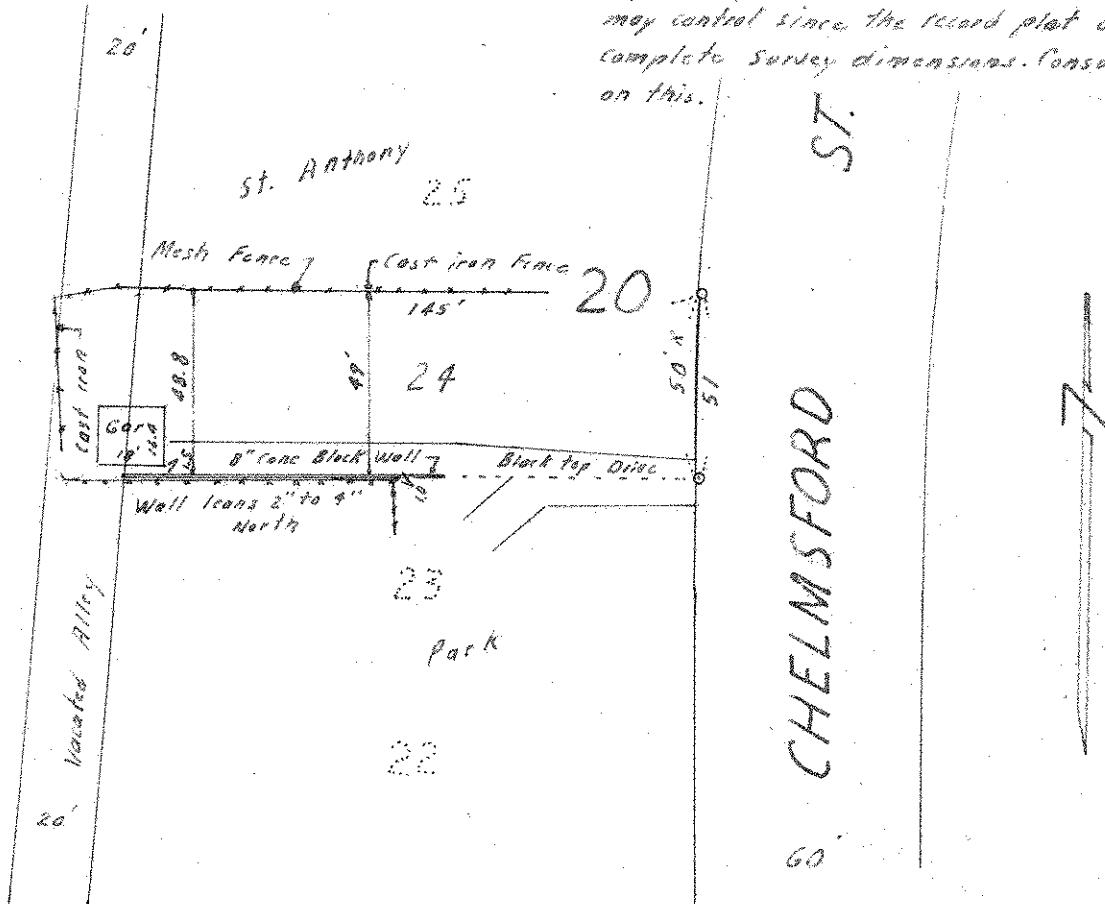 may control since the record plat
complete survey dimensions.
on this.
20'
ST.
St. Anthony
25
Mesh Fence
Cast iron Fence
20
145'
50' R
51
Cast iron
48.8
49'
24
Gar
18'
8" Conc Block Wall
Black top Drive
Wall leans 2" to 4"
North
CHELMSFORD
23
Park
Vacated Alley
22
20'
60'